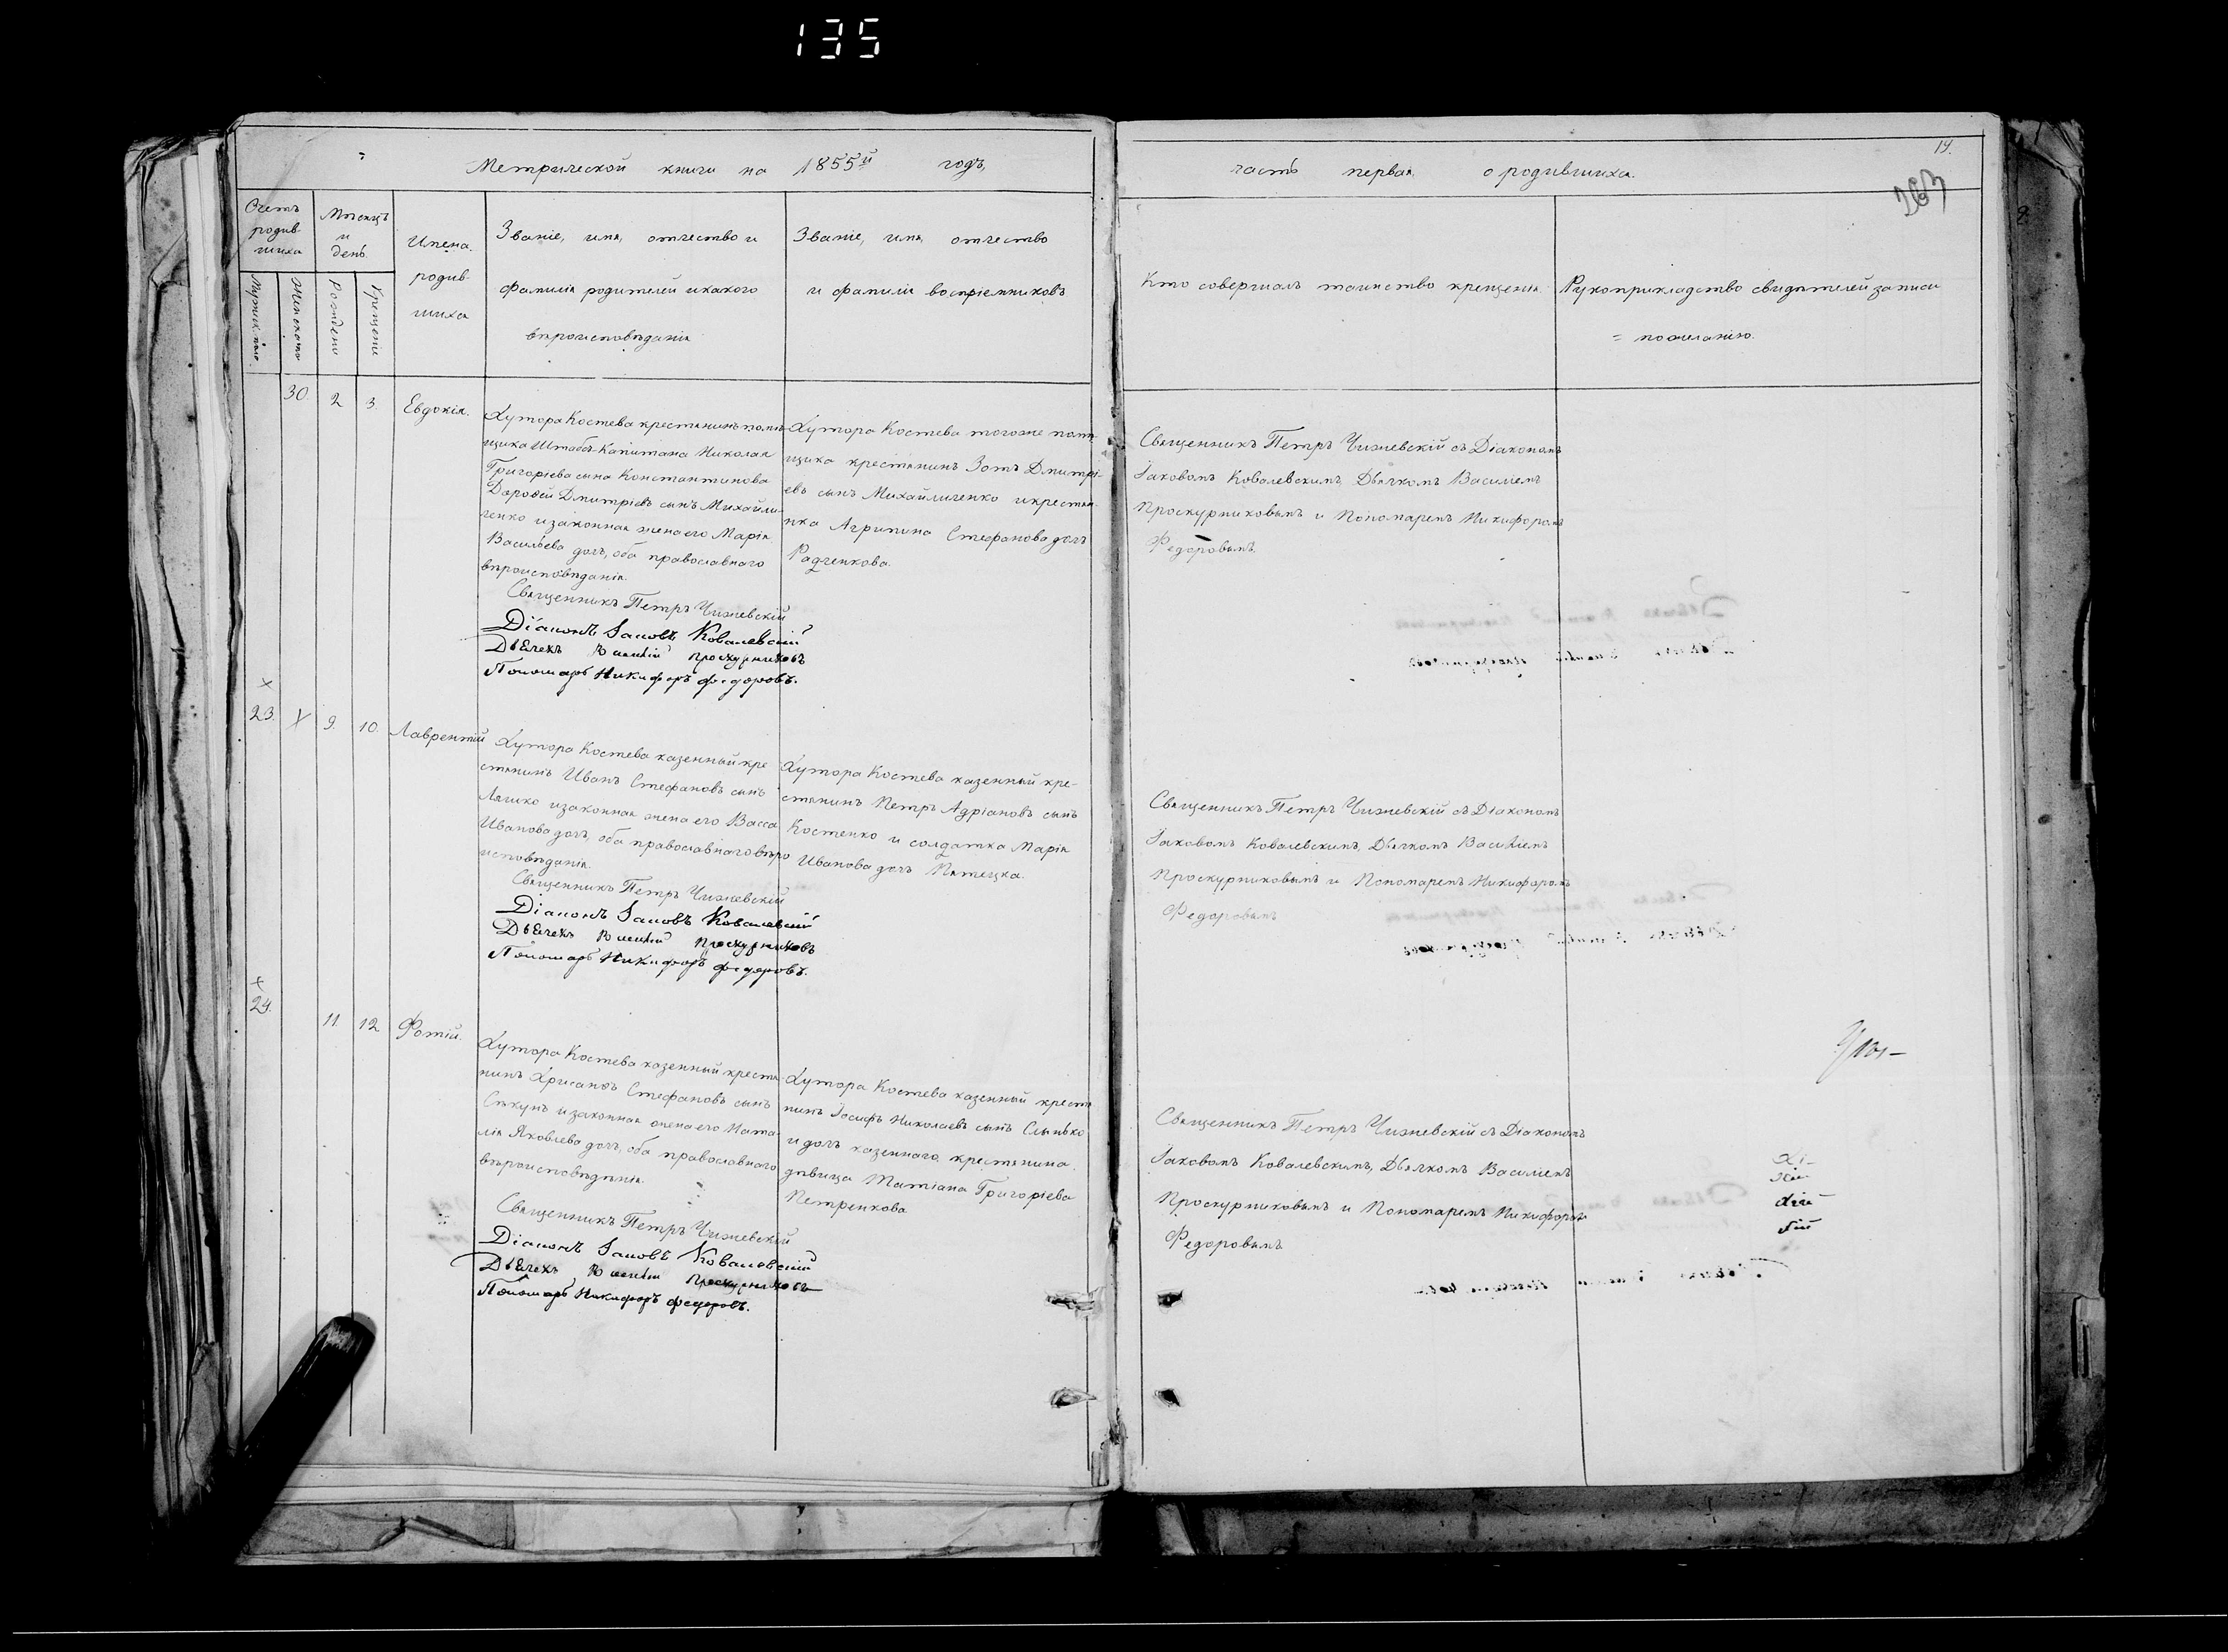 135
Метрической книги на 1855й годъ,
Счетъ родив-шихся
Мужеска
Женска
Мѣсяцъ и день
Рожденія
Крещенія
Имена родив-шихся
Званіе, имя, отчество и
фамилія родителей и какого
вѣроисповѣданія
Званіе, имя, отчество
и фамилія воспріемниковъ
30. 2 3. Евдокія.
Хутора Костева крестьянинъ помѣ-
щика Штабсъ-Капитана Николая
Григоріева сына Константинова
Дороѳей Дмитріевъ сынъ Михайли-
ченко и законная жена его Марія
Васильева дочь, оба православнаго
вѣроисповѣданія.
Священникъ Петръ Чижевскій
Діаконъ Іаковъ Ковалевскій
Дьячекъ Василій Проскурниковъ
Пономарь Никифоръ Федоровъ.
Хутора Костева тогоже помѣ-
щика крестьянинъ Зотъ Дмитрі-
евъ сынъ Михайличенко и крестьян-
нка Агрипина Стефанова дочь
Радченкова.
23. 9. 10. Лаврентій
Хутора Костева казенный кре
стьянинъ Иванъ Стефановъ сынъ
Ляшко и законная жена его Васса
Иванова дочь, оба православнаго вѣро
исповѣданія.
Священникъ Петръ Чижевскій
Діаконъ Іаковъ Ковалевскій
Дьячекъ Василій Проскурниковъ
Пономарь Никифоръ Федоровъ.
Хутора Костева казенный кре-
стьянинъ Петръ Адріановъ сынъ
Костенко и солдатка Марія
Иванова дочь
24. 11. 12 Фотій.
Хутора Костева казенный крестья
нинъ Хрисанѳъ Стефановъ сынъ
Сѣкунъ и законная жена его Ната-
лія Яковлева дочь, оба православнаго
вѣроисповѣданія.
Священникъ Петръ Чижевскій
Діаконъ Іаковъ Ковалевскій
Дьячекъ Василій Проскурниковъ
Пономарь Никифоръ Федоровъ.
Хутора Костева казенный крестья
нинъ Іосифъ Николаевъ сынъ Слынько
и дочь казеннаго крестьянина
дѣвица Татіана Григоріева
Петренкова
14.
часть первая о родившихся.
Кто совершалъ таинство крещенія
Рукоприкладство свидѣтелей записи
= по желанію.
Священникъ Петръ Чижевскій съ Діакономъ
Іаковомъ Ковалевскимъ, Дьячкомъ Василіемъ
Проскурниковымъ и Пономаремъ Никифоромъ
Федоровымъ
Священникъ Петръ Чижевскій съ Діакономъ
Іаковомъ Ковалевскимъ, Дьячкомъ Василіемъ
Проскурниковымъ и Пономаремъ Никифоромъ
Федоровымъ
Священникъ Петръ Чижевскій съ Діакономъ
Іаковомъ Ковалевскимъ, Дьячкомъ Василіемъ
Проскурниковымъ и Пономаремъ Никифоромъ
Федоровымъ